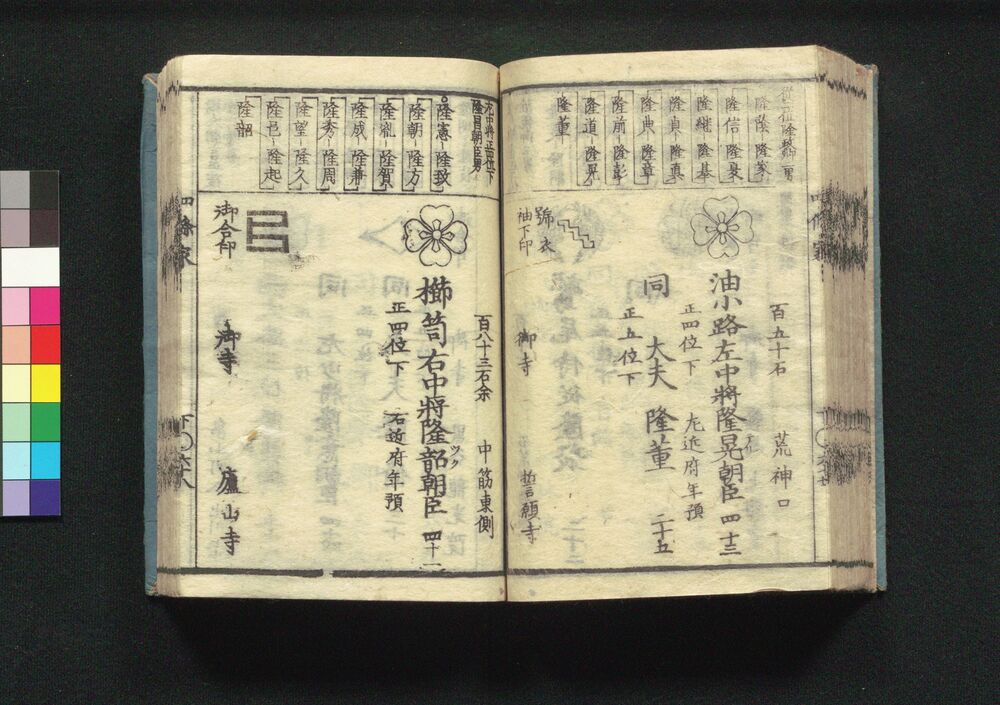 隆蔭 隆家
隆信 隆裛
隆継 隆基
隆貞 隆真
隆典 隆章
隆前 隆彭
隆道 隆晃
隆董
百五十石 荒神口
油小路左中将隆晃朝臣 四十三
正四位下 左近府年預
同 大夫 隆董 二十五
正五位下
號衣
袖下印
御寺 誓願寺
左中将正四位下
隆昌朝臣男
隆憲 隆致
隆朝 隆方
隆胤 隆賀
隆成 隆兼
隆秀 隆周
隆望 隆久
隆邑 隆起
隆韶
百八十三石余 中筋東側
櫛笥右中将隆韶朝臣 四十一
ツク
正四位下 右近府年預
御合印
御寺 廬山寺
四條家
下 六十八